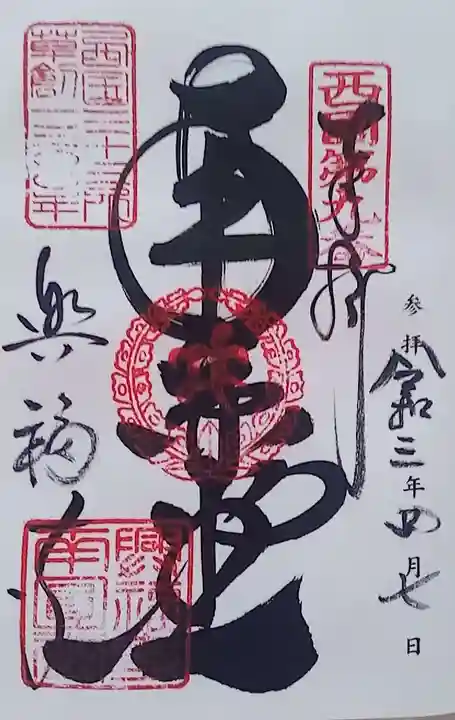 奉拝
西国第九番
参拝
令和三年四月七日
南円堂
西国三十三所
草創1300年
興福寺
興福寺
南円堂